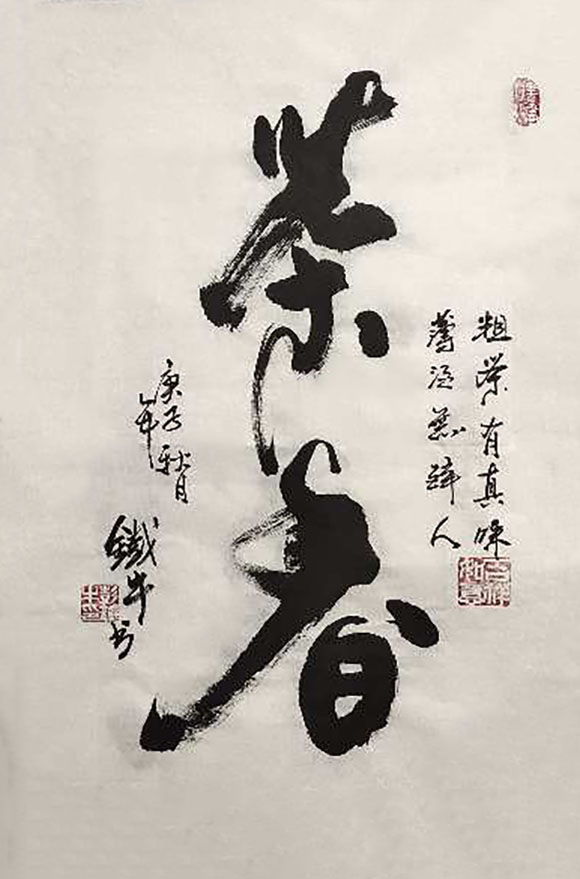 茶香
粗茶有真味
薄酒無醉人
庚子年秋月
鐵牛书